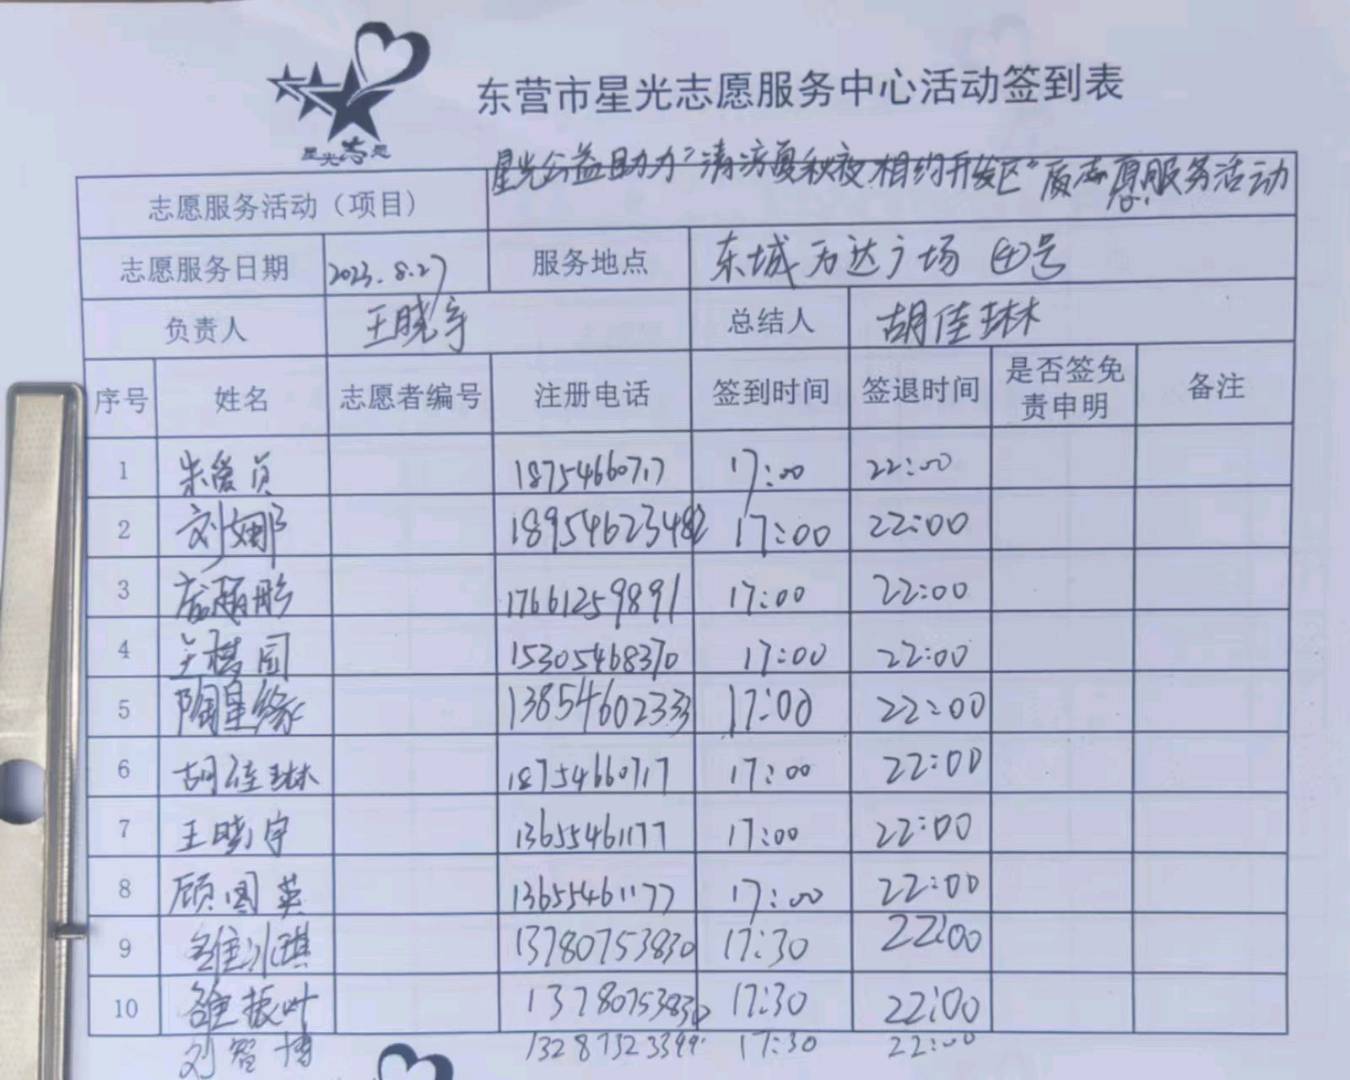 星光志愿
东营市星光志愿服务中心活动签到表
志愿服务活动（项目） 星光公益助力"清凉夏秋夜 相约开发区"夜志愿服务活动
志愿服务日期 2023.8.27 服务地点 东城万达广场④号
负责人 王晓宇 总结人 胡佳琳
序号 姓名 志愿者编号 注册电话 签到时间 签退时间 是否签免责申明 备注
1 朱爱贞 18754660717 17:00 22:00
2 刘娜 18954623482 17:00 22:00
3 17661259891 17:00 22:00
4 15305468370 17:00 22:00
5 陶星缘 13854602333 17:00 22:00
6 胡佳琳 18754660717 17:00 22:00
7 王晓宇 13655461177 17:00 22:00
8 顾图英 13655461177 17:00 22:00
9 雒冰琪 13780753830 17:30 22:00
10 雒振叶 13780753830 17:30 22:00
刘智博 13287323399 17:30 22:00